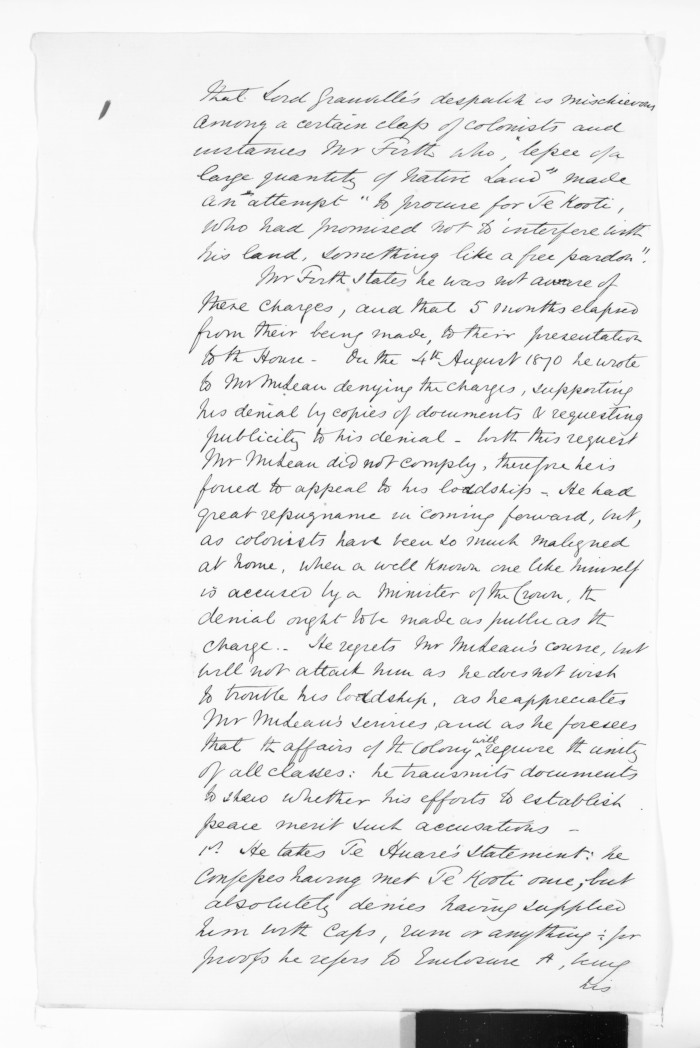 that Lord Granville's despatch is mischievous
among a certain class of colonists and
instances Mr Firth who, "lessee of a
large quantity of Native Land" made
an "attempt" "to procure for Te Kooti,
who had promised not to interfere with
his land, something like a free pardon".
Mr Firth states he was not aware of
these charges, and that 5 months elapsed
from their being made, to their presentation
to th House - On the 4th August 1870 he wrote
to Mr McLean denying the charges, supporting
his denial by copies of documents & requesting
publicity to his denial - With this request
Mr McLean did not comply, therefore he is
forced to appeal to his lordship - He had
great repugnance in coming forward, but,
as colonists have been so much maligned
at home, when a well known one like himself
is accused by a Minister of the Crown, th
denial ought to be made as public as th
charge.- He regrets Mr McLean's course, but
will not attack him as he does not wish
to trouble his lordship, as he appreciates
Mr McLean's services, and as he foresees
that th affairs of th Colony will require th unity
of all classes: he transmits documents
to shew whether his efforts to establish
peace merit such accusations -
1st He takes Te Huare's statement: he
confesses having met Te Kooti once, but
absolutely denies having supplied
him with caps, rum or anything: for
proofs he refers to Enclosure A, being
his